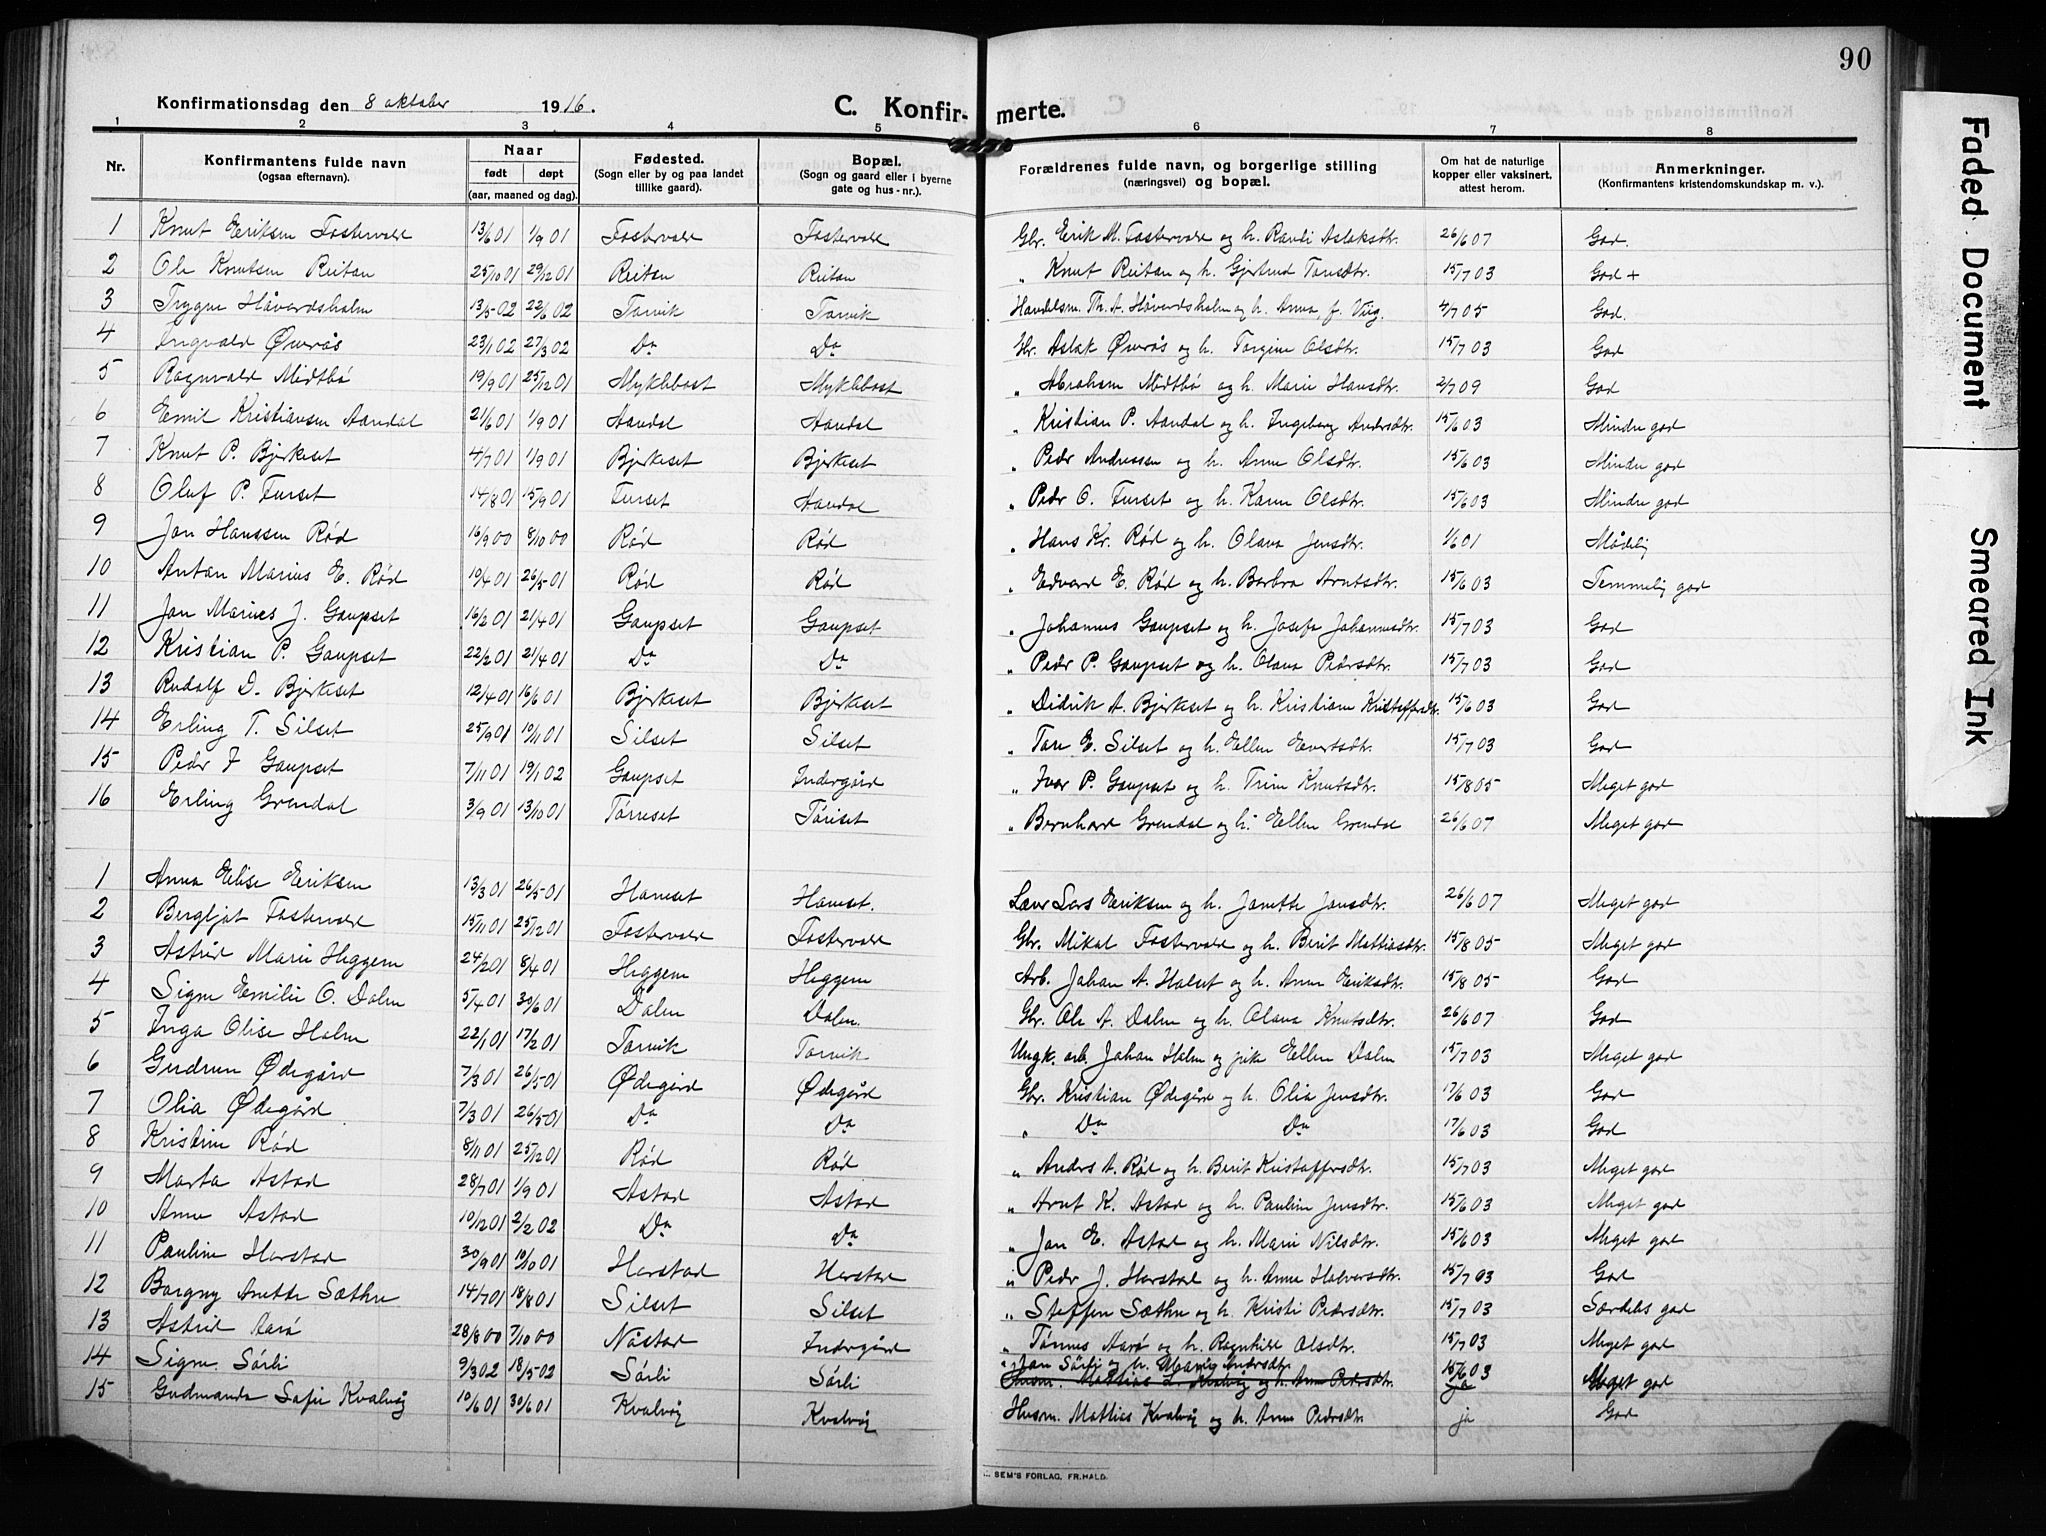 90
Konfirmationsdag den 8 oktober 1916.
C. Konfirmerte.
1 2 3 4 5 6 7 8
Nr. Konfirmantens fulde navn (ogsaa efternavn). Naar født døpt (aar, maaned og dag). Fødested. (Sogn eller by og paa landet tillike gaard). Bopæl. (Sogn og gaard eller i byerne gate og hus-nr.). Forældrenes fulde navn, og borgerlige stilling (næringsvei) og bopæl. Om hat de naturlige kopper eller vaksinert, attest herom. Anmerkninger. (Konfirmantens kristendomskundskap m. v.).
1 Knut Eriksen Fostervold 13/6 01 1/9 01 Fostervold Fostervold Gbr. Erik M. Fostervold og h. Randi Aslaksdtr. 26/6 07 God.
2 Ole Knutsen Reitan 25/10 01 29/12 01 Reitan Reitan " Knut Reitan og h. Gjertrud Toresdtr. 15/7 03 God +
3 Trygve Håvardsholm 13/5 02 22/6 02 Torvik Torvik Handelsm. Th. A. Håvardsholm og h. Anna, f. Viig. 4/7 05 God.
4 Ingvald Øverås 23/1 02 27/3 02 Do Do Gbr. Aslak Øverås og h. Torgine Olsdtr. 15/7 03 God
5 Ragnvald Midtbø 19/9 01 25/12 01 Myklebost Myklebost " Abraham Midtbø og h. Marie Hansdtr. 2/7 09 God
6 Emil Kristiansen Aandal 21/6 01 1/9 01 Aandal Aandal " Kristian P. Aandal og h. Ingeborg Andrsdtr. 15/6 03 Mindre god
7 Knut P. Bjerkeset 4/7 01 1/9 01 Bjerkeset Bjerkeset " Peder Andressen og h. Anne Olsdtr. 15/6 03 Mindre god
8 Oluf P. Furset 14/8 01 15/9 01 Furset Aandal " Peder O. Furset og h. Karen Olsdtr. 15/6 03 Mindre god
9 Jon Hanssen Rød 16/9 00 8/10 00 Rød Rød " Hans Kr. Rød og h. Olava Jensdtr. 1/6 01 Mådelig
10 Anton Marius E. Rød 19/4 01 26/5 01 Rød Rød " Edvard E. Rød og h. Barbra Arntsdtr. 15/6 03 Temmelig god
11 Jon Marius J. Gaupset 16/2 01 21/4 01 Gaupset Gaupset " Johannes Gaupset og h. Josefa Johannesdtr. 15/7 03 God
12 Kristian P. Gaupset 22/2 01 21/4 01 Do Do " Peder P. Gaupset og h. Olava Pedersdtr. 15/7 03 God
13 Rudolf D. Bjerkeset 12/4 01 16/6 01 Bjerkeset Bjerkeset " Didrik A. Bjerkeset og h. Kristiane Kristoffersdtr. 15/6 03 God
14 Erling T. Silset 25/9 01 10/11 01 Silset Silset " Tore E. Silset og h. Ellen Evertsdtr. 15/7 03 God
15 Peder I Gaupset 7/11 01 19/1 02 Gaupset Indergård " Ivar P. Gaupset og h. Trine Knutsdtr. 15/8 05 Meget god
16 Erling Grendal 3/9 01 13/10 01 Tørreset Tøriset " Bernhard Grendal og h. Ellen Grendal 26/6 07 Meget god
1 Anna Elise Eriksen 13/3 01 26/5 01 Harset Harset. Lærer Lars Eriksen og h. Janette Jonsdtr. 26/6 07 Meget god
2 Bergljot Fostervold 15/11 01 25/12 01 Fostervold Fostervold Gbr. Mikal Fostervold og h. Berit Mattiasdtr. 15/8 05 Meget god
3 Astrid Marie Heggem 24/2 01 8/4 01 Heggem Heggem Arb. Johan A. Holset og h. Anne Eriksdtr. 15/8 05 God
4 Signe Emilie O. Dalen 5/4 01 30/6 01 Dalen Dalen. Gbr. Ole A. Dalen og h. Olava Knutsdtr. 26/6 07 God
5 Inga Olise Holm 22/1 01 17/2 01 Torvik Torvik Ungk. arb. Johan Holm og pike Ellen Dalen 15/7 03 Meget god
6 Gudrun Ødegård 7/3 01 26/5 01 Ødegård Ødegård Gbr. Kristian Ødegård og h. Olia Jensdtr. 17/6 03 God
7 Olia Ødegård 7/3 01 26/5 01 Do Do " Do Do 17/6 03 God
8 Kristine Rød 8/11 01 25/12 01 Rød Rød " Anders A. Rød og h. Berit Kristoffersdtr. 15/7 03 Meget god
9 Marta Astad 28/7 01 1/9 01 Astad Astad " Arnt K. Astad og h. Pauline Jensdtr. 15/6 03 Meget god
10 Anne Astad 10/12 01 2/2 02 Do Do " Jon E. Astad og h. Marie Nilsdtr. 15/6 03 Meget god
11 Pauline Harstad 30/9 01 10/10 01 Harstad Harstad " Peder J. Harstad og h. Anne Halvorsdtr. 15/7 03 God
12 Borgny Anette Sæthre 14/7 01 18/8 01 Silset Silset " Steffen Sæthre og h. Kristi Pedersdtr. 15/7 03 Særdeles god
13 Astrid Aarø 28/8 00 7/10 00 Nåstad Indergård " Tønnes Aarø og h. Ragnhild Olsdtr. 15/7 03 Meget god
14 Signe Sørli 9/3 02 18/5 02 Sørli Sørli " Jon Sørli og h. Marie Andrsdtr. 15/6 03 Meget god
Husm. Mattias L. Kvalvåg og h. Anne Pedersdtr. ja
15 Gudmunda Sofie Kvalvåg 10/6 01 30/6 01 Kvalvåg Kvalvåg Husm. Mattias Kvalvåg og h. Anne Pedersdtr. ja God
SEM'S FORLAG, FR.HALD.
Faded Document
Smeared Ink